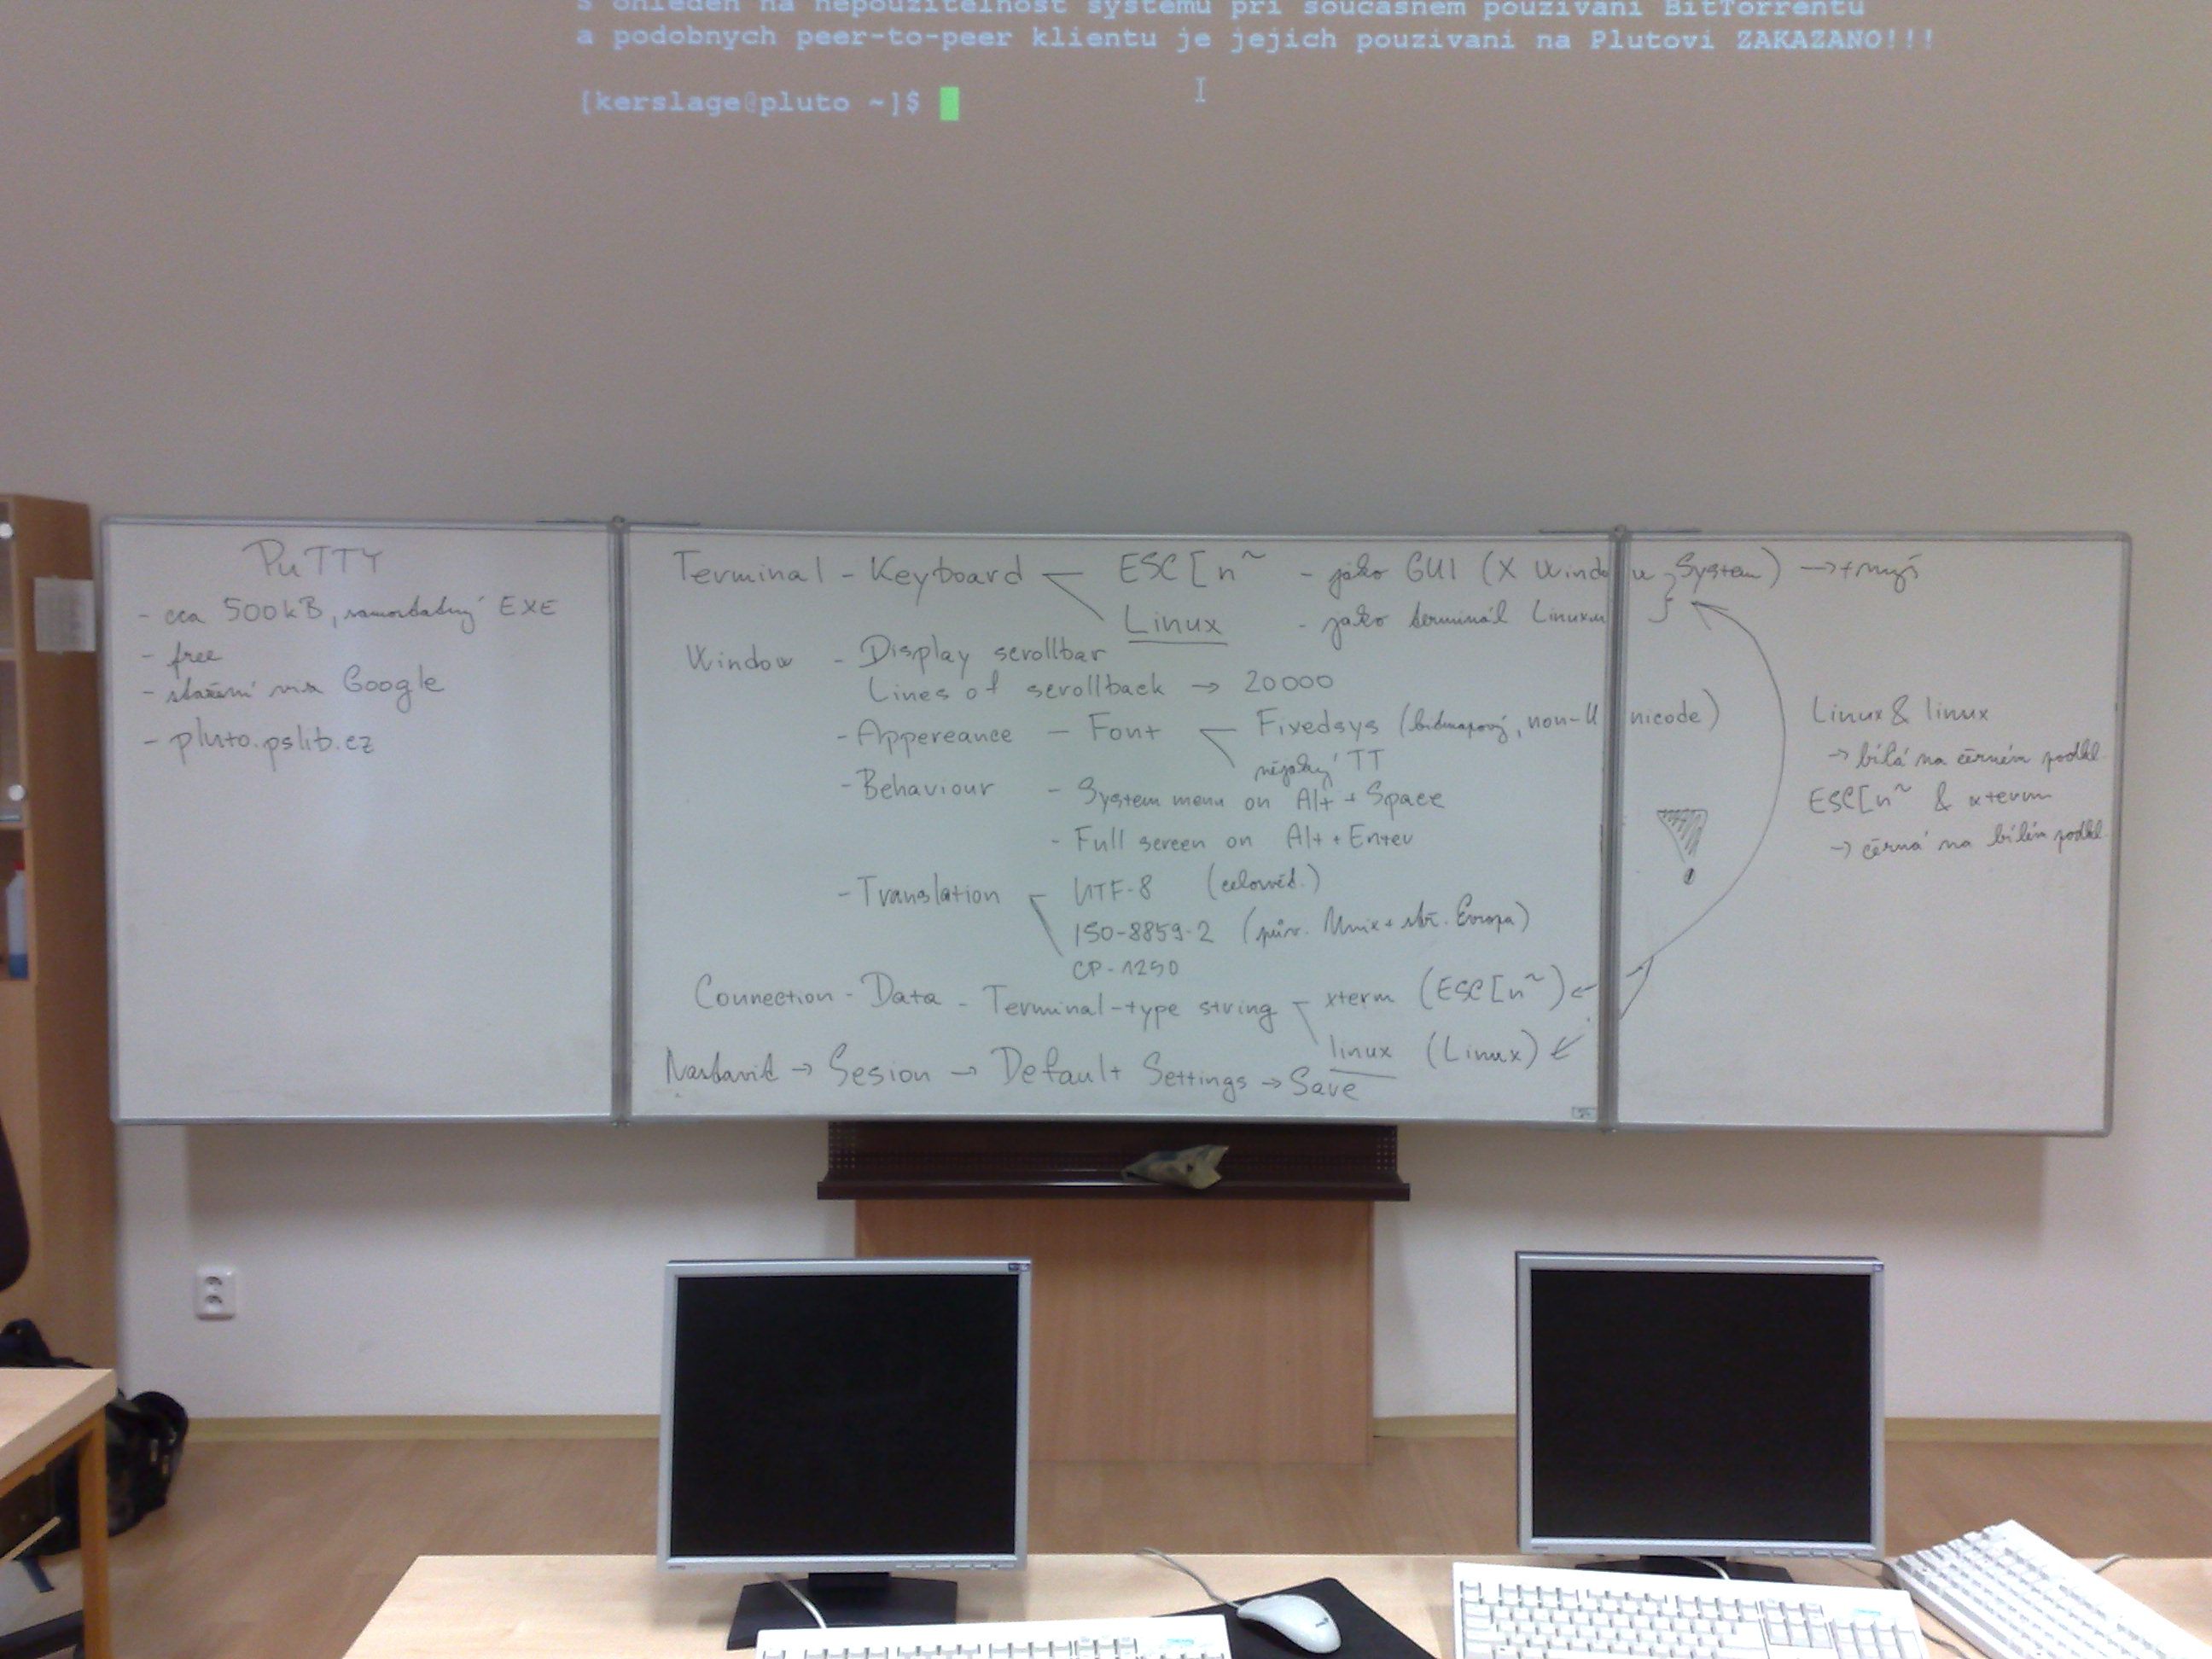 S ohledem na nepouzitelnost systemu pri soucasnem pouzivani BitTorrentu
a podobnych peer-to-peer klientu je jejich pouzivani na Plutovi ZAKAZANO!!!
[kerslage@pluto ~]$
PuTTY
- cca 500kB, samostatný EXE
- free
- stažení via Google
- pluto.pslib.cz
Terminal - Keyboard ESC[n~ - jako GUI (X Window System) → + myš
Linux - jako terminál Linuxu
Window - Display scrollbar
Lines of scrollback → 20000
- Appereance - Font Fixedsys (bitmapový, non-Unicode)
nějaký TT
- Behaviour - System menu on Alt + Space
- Full screen on Alt + Enter
- Translation UTF-8 (celosvět.)
ISO-8859-2 (pův. Unix + stř. Evropa)
CP-1250
Connection - Data - Terminal-type string xterm (ESC[n~) ←
linux (Linux) ←
Nastavit → Sesion → Default Settings → Save
Linux & linux
→ bílá na černém podkl.
ESC[n~ & xterm
→ černá na bílém podkl.